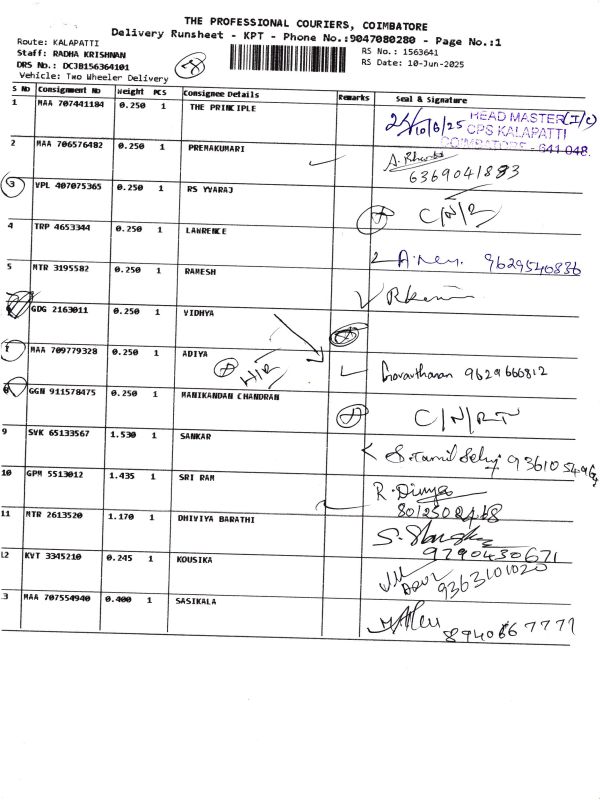 THE PROFESSIONAL COURIERS, COIMBATORE
Delivery Runsheet - KPT - Phone No.:9047080280 - Page No.:1
Route: KALAPATTI
Staff: RADHA KRISHNAN
DRS No.: DCJB156364101
Vehicle: Two Wheeler Delivery
RS No.: 1563641
RS Date: 10-Jun-2025
S No Consignment No Weight PCS Consignee Details Remarks Seal & Signature
1 MAA 707441184 0.250 1 THE PRINCIPLE
10/6/25 HEAD MASTER(I/C)
CPS KALAPATTI
COIMBATORE - 641 048.
2 MAA 706576482 0.250 1 PREMAKUMARI
3 VPL 407075365 0.250 1 RS YVARAJ C/N/R
4 TRP 4653344 0.250 1 LAWRENCE 9629540836
5 MTR 3195582 0.250 1 RAMESH
GDG 2163011 0.250 1 VIDHYA
7 MAA 709779328 0.250 1 ADIYA 9629666812
8 GGN 911578475 0.250 1 MANIKANDAN CHANDRAN C/N/RT
9 SVK 65133567 1.530 1 SANKAR S. Tamil Selvi
10 GPM 5513012 1.435 1 SRI RAM R. Divya
11 MTR 2613520 1.170 1 DHIVIYA BARATHI
9790430671
12 KVT 3345210 0.245 1 KOUSIKA
9363101020
13 MAA 707554940 0.400 1 SASIKALA